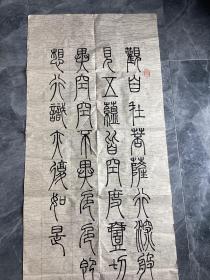 觀自在菩薩行深般
見五蘊皆空度一切
異空空不異色色即
想行識亦復如是